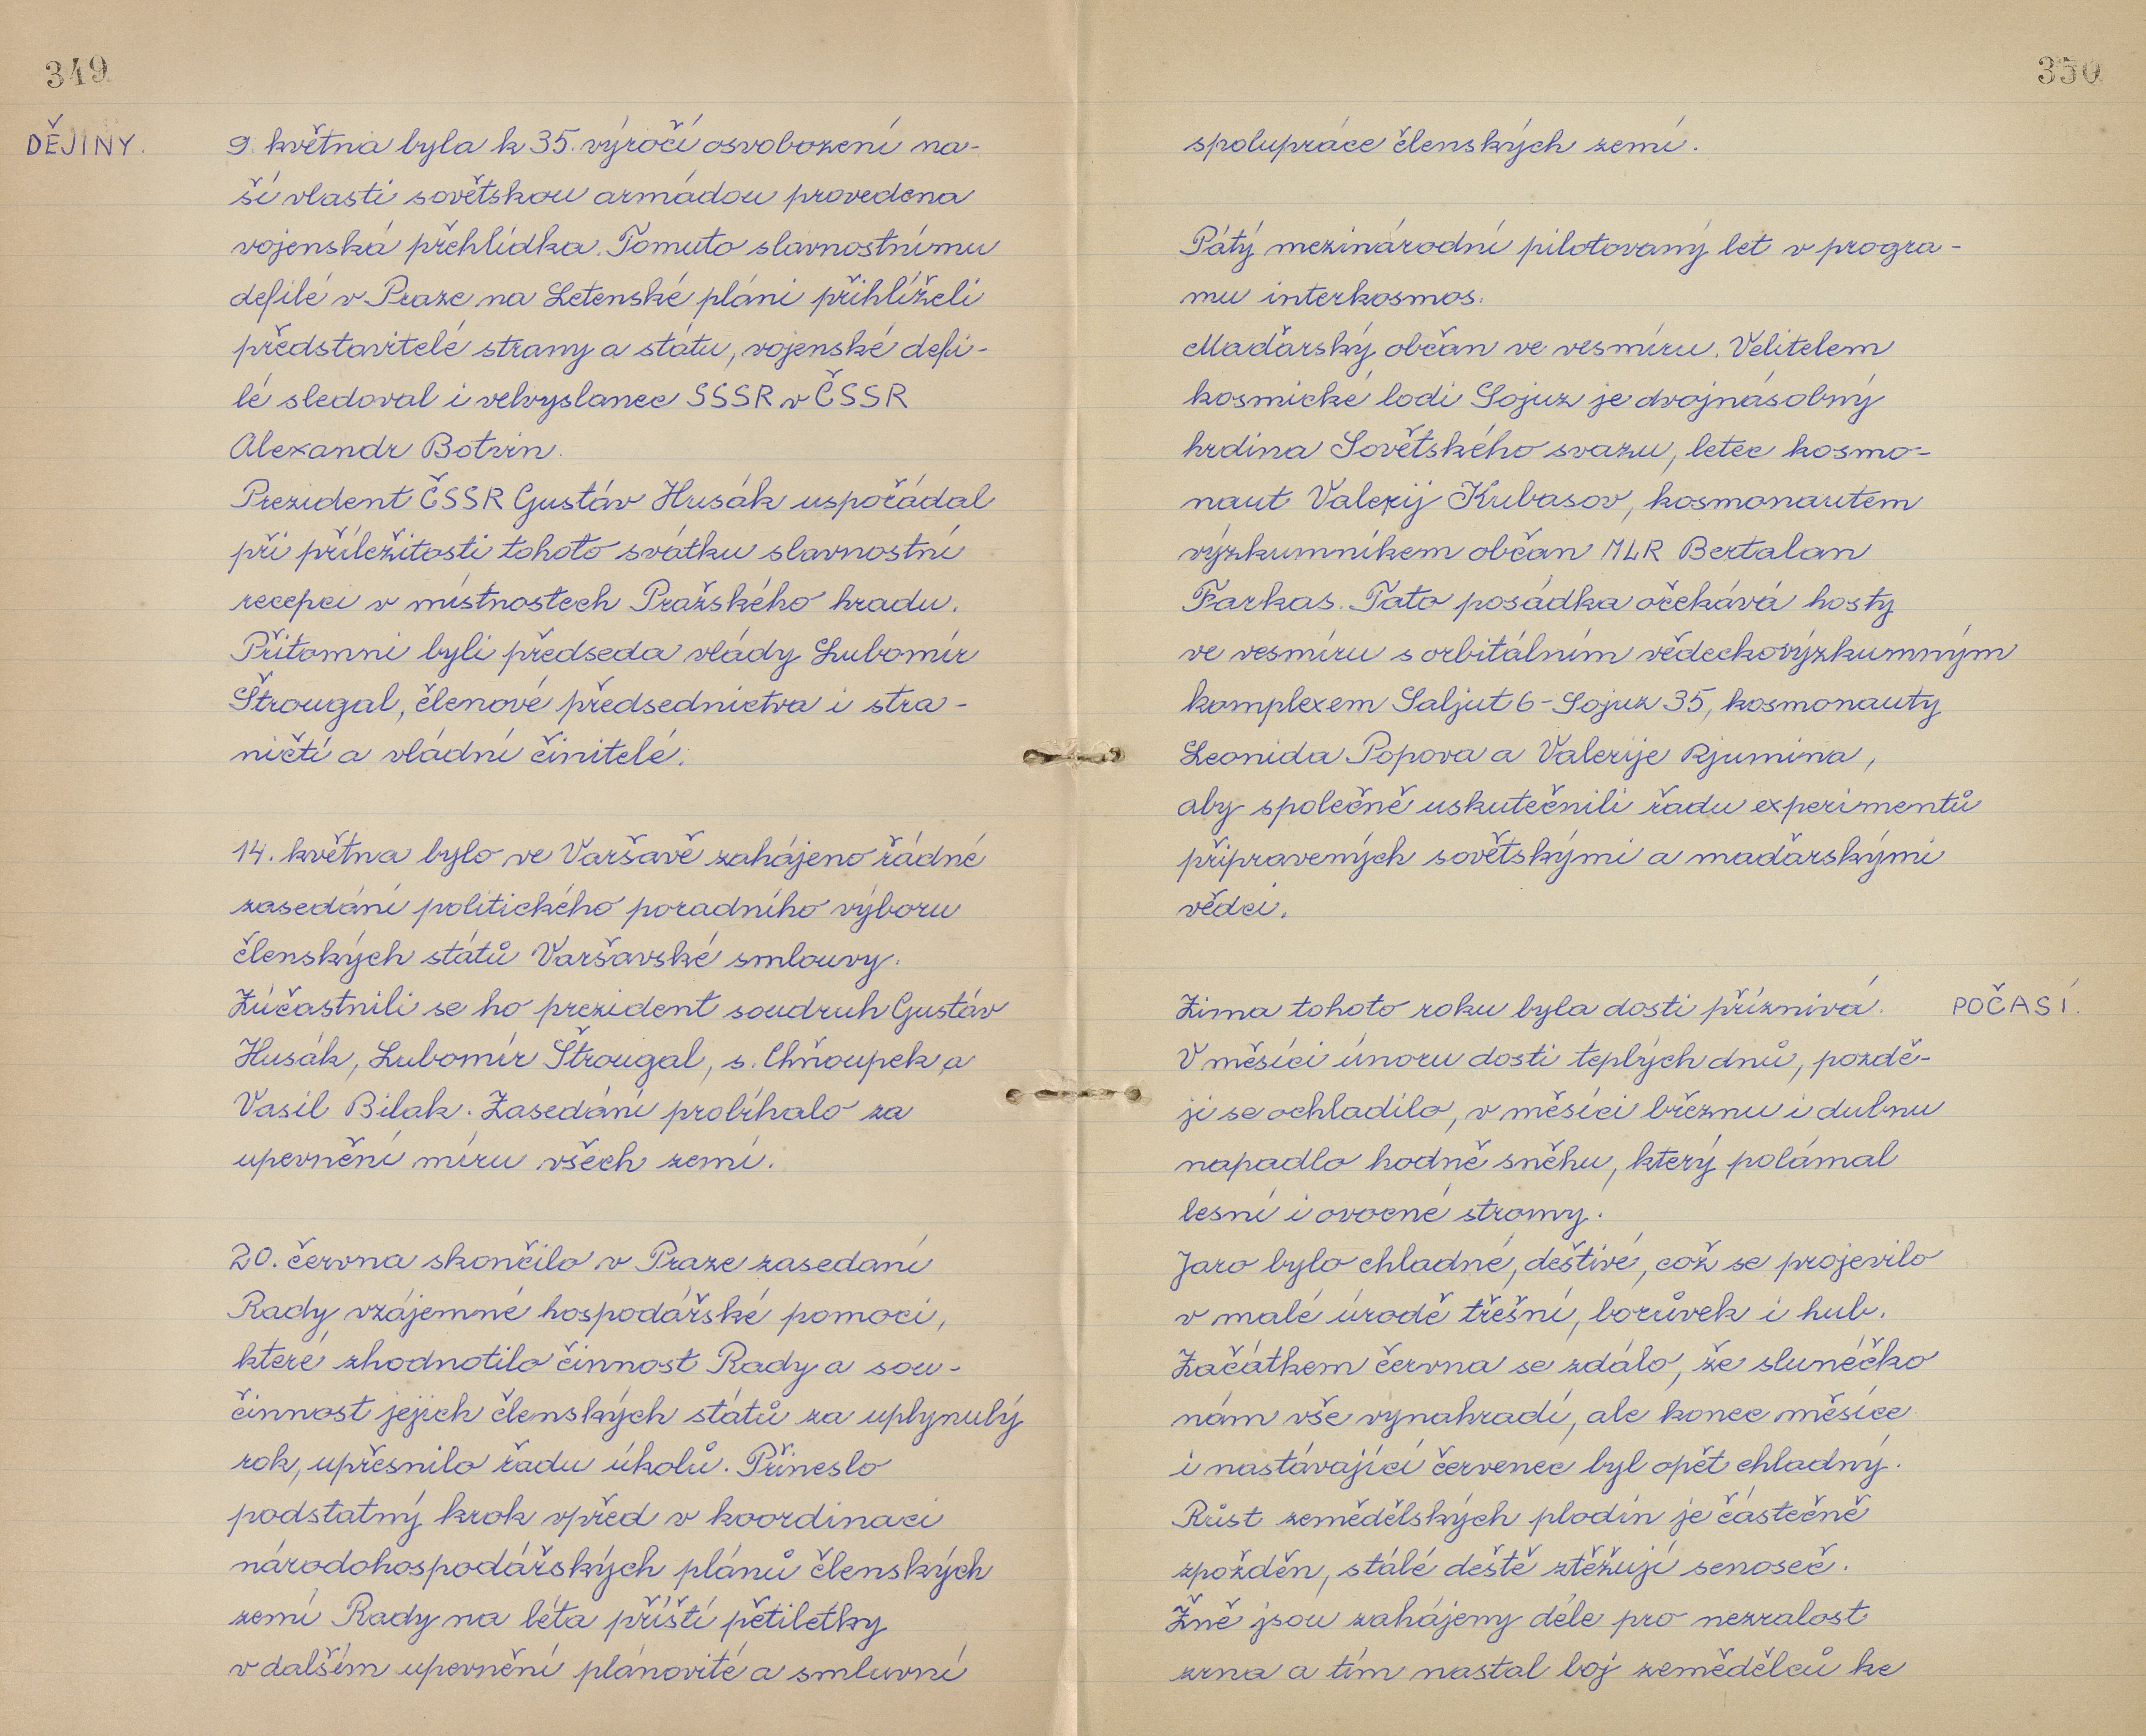 349
DĚJINY.
9. května byla k 35. výročí osvobození na-
ší vlasti sovětskou armádou provedena
vojenská přehlídka. Tomuto slavnostnímu
defilé v Praze na Letenské pláni přihlíželi
představitelé strany a státu, vojenské defi-
lé sledoval i velvyslanec SSSR v ČSSR
Alexandr Botvin.
Prezident ČSSR Gustáv Husák uspořádal
při příležitosti tohoto svátku slavnostní
recepci v místnostech Pražského hradu.
Přítomni byli předseda vlády Lubomír
Štrougal, členové předsednictva i stra-
ničtí a vládní činitelé.
14. května bylo ve Varšavě zahájeno řádné
zasedání politického poradního výboru
členských států Varšavské smlouvy.
Zúčastnili se ho prezident soudruh Gustáv
Husák, Lubomír Štrougal, s. Chňoupek a
Vasil Bilak. Zasedání probíhalo za
upevnění míru všech zemí.
20. června skončilo v Praze zasedaní
Rady vzájemné hospodářské pomoci,
které zhodnotilo činnost Rady a sou-
činnost jejich členských států za uplynulý
rok, upřesnilo řadu úkolů. Přineslo
podstatný krok vpřed v koordinaci
národohospodářských plánů členských
zemí Rady na léta příští pětiletky
v dalším upevnění plánovité a smluvní
350
spolupráce členských zemí.
Pátý mezinárodní pilotovaný let v progra-
mu interkosmos.
Maďarský občan ve vesmíru. Velitelem
kosmické lodi Sojuz je dvojnásobný
hrdina Sovětského svazu, letec kosmo-
naut Valerij Kubasov, kosmonautem
výzkumníkem občan MLR Bertalan
Farkas. Tato posádka očekává hosty
ve vesmíru s orbitálním vědeckovýzkumným
komplexem Saljut 6 - Sojuz 35, kosmonauty
Leonida Popova a Valerije Rjumina,
aby společně uskutečnili řadu experimentů
připravených sovětskými a maďarskými
vědci.
Zima tohoto roku byla dosti příznivá.
POČASÍ.
V měsíci únoru dosti teplých dnů, pozdě-
ji se ochladilo, v měsíci březnu i dubnu
napadlo hodně sněhu, který polámal
lesní i ovocné stromy.
Jaro bylo chladné, deštivé, což se projevilo
v malé úrodě třešní, borůvek i hub.
Začátkem června se zdálo, že sluníčko
nám vše vynahradí, ale konec měsíce
i nastávající červenec byl opět chladný.
Růst zemědělských plodin je částečně
zpožděn, stálé deště ztěžují senoseč.
Žně jsou zahájeny déle pro nezralost
zrna a tím nastal boj zemědělců ke